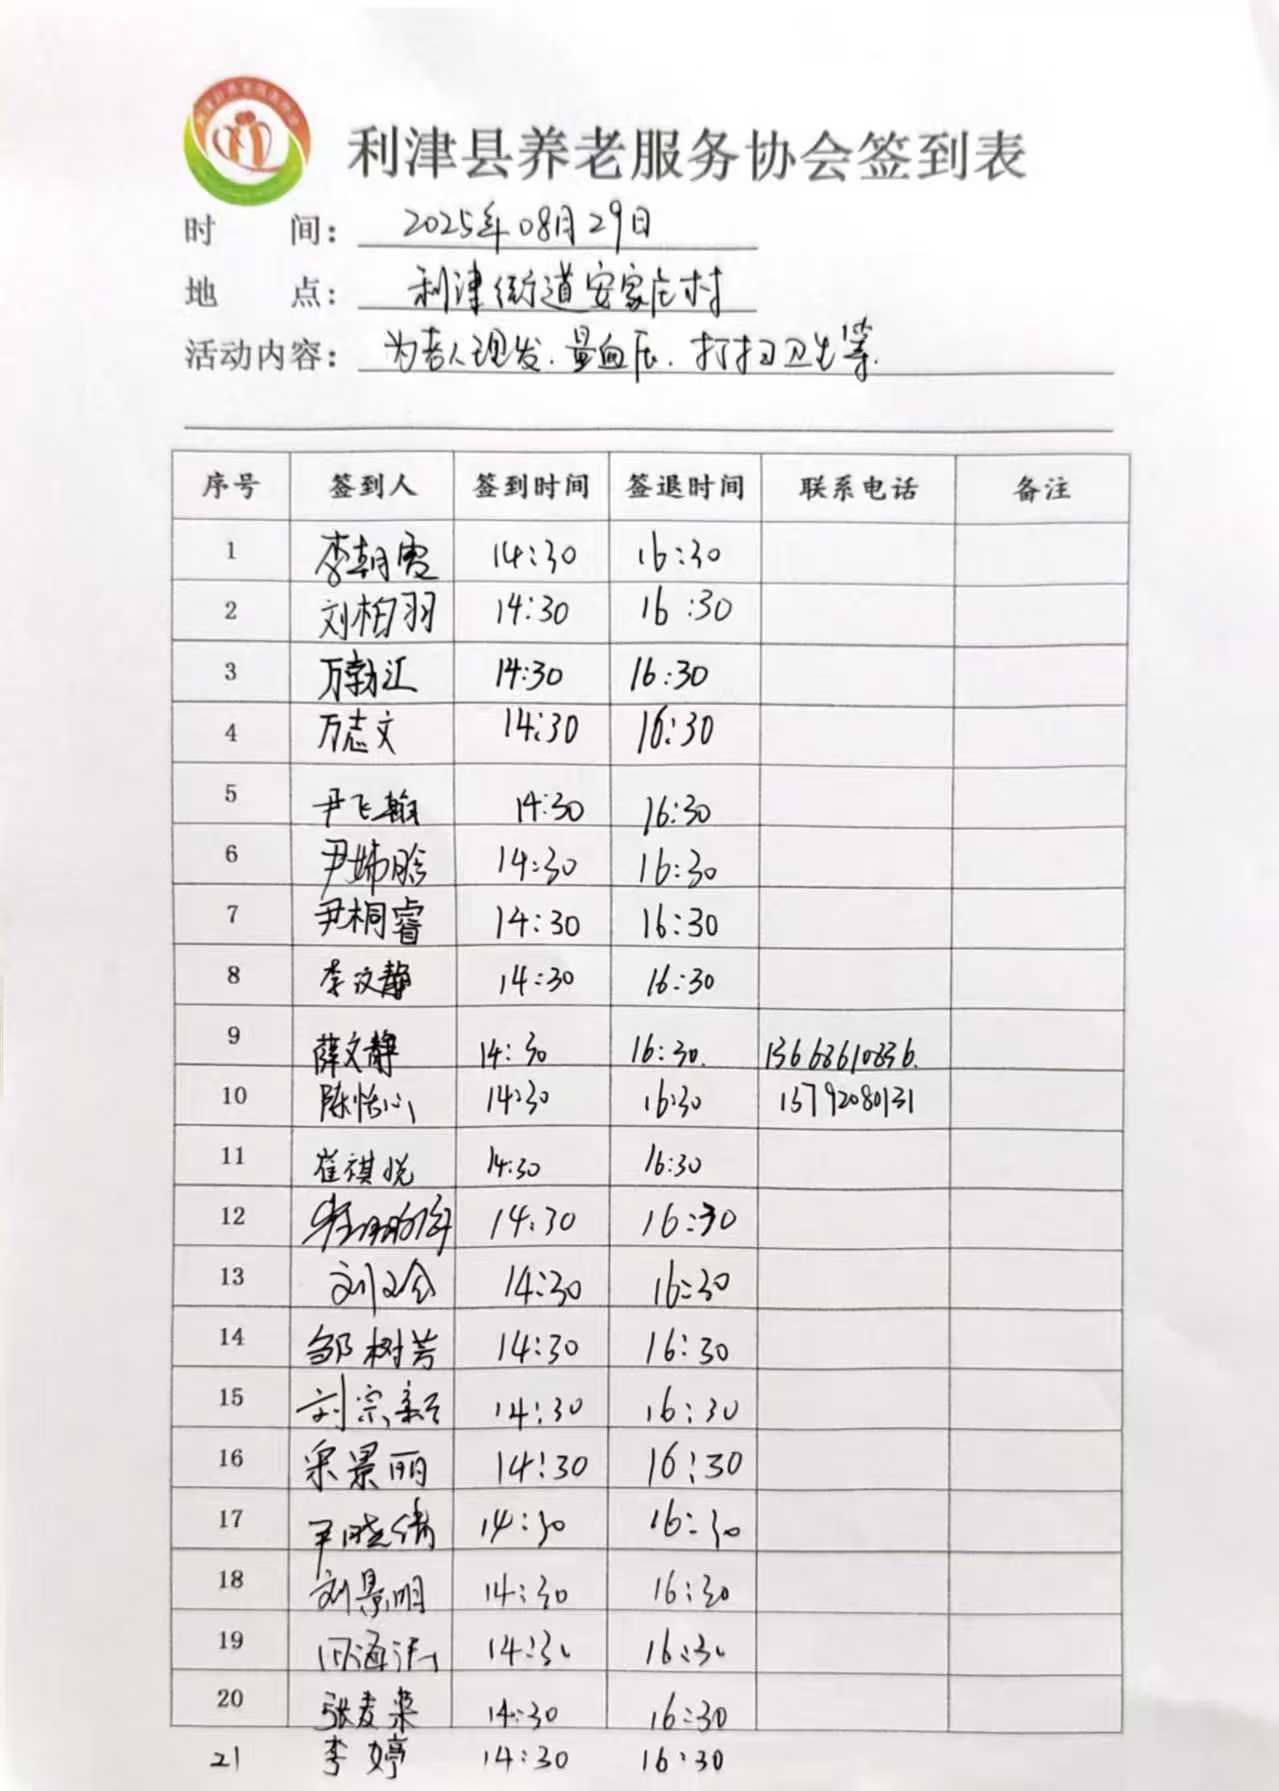 利津县养老服务协会
利津县养老服务协会签到表
时 间： 2025年08月29日
地 点： 利津街道安家庄村
活动内容： 为老人理发.量血压.打扫卫生等.
序号 签到人 签到时间 签退时间 联系电话 备注
1 李朝霞 14:30 16:30
2 刘柏羽 14:30 16:30
3 万勃汇 14:30 16:30
4 万志文 14:30 16:30
5 尹飞翰 14:30 16:30
6 尹 14:30 16:30
7 尹桐睿 14:30 16:30
8 李文静 14:30 16:30
9 薛文静 14:30 16:30. 13668610836.
10 陈恬心 14:30 16:30 13792080131
11 崔祺悦 14:30 16:30
12 14:30 16:30
13 刘文会 14:30 16:30
14 邹树芳 14:30 16:30
15 刘宗新 14:30 16:30
16 景丽 14:30 16:30
17 晓倩 14:30 16:30
18 刘景明 14:30 16:30
19 海 14:30 16:30
20 张麦荣 14:30 16:30
21 李婷 14:30 16:30